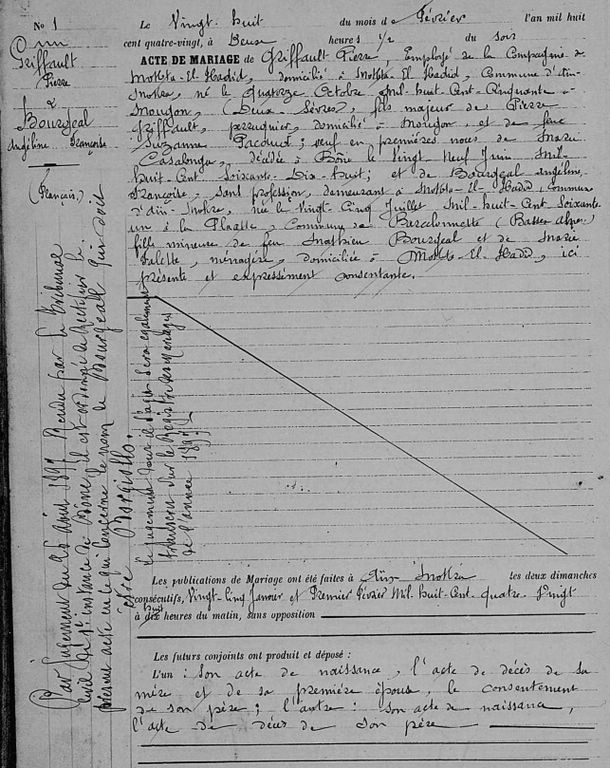 No 1
Griffault
Pierre
&
Bourgeal
Angéline Françoise
(Français)
Le Vingt-huit du mois de Février l'an mil huit
cent quatre-vingt, à Deux heures 1/2 du soir
ACTE DE MARIAGE de Griffault Pierre, Employé de la Compagnie de
Mokta-El-Hadid, domicilié à Mokta-El-Hadid, Commune d'Aïn-
Mokra, né le quatorze Octobre mil-huit-Cent-Cinquante à
Mougon, (Deux-Sèvres), fils majeur de Pierre
Griffault, perruquier, domicilié à Mougon, et de feue
Suzanne Pacoud; veuf en premières noces de Marie
Casalonga, décédée à Bône le vingt-Neuf Juin Mil-
huit-Cent Soixante-Dix-huit; et de Bourgeal Angéline
Françoise, sans profession, demeurant à Mokta-El-Hadid, Commune
d'Aïn-Mokra, née le Vingt-Cinq Juillet Mil-huit-Cent Soixante
un à la Commune de Barcelonnette (Basses-Alpes)
fille mineure de feu Mathieu Bourgeal et de Marie
Valette, ménagère, domiciliée à Mokta-El-Hadid, ici
présente et expressément consentante.
Par jugement du 26 août 1897 Rendu par le Tribunal
civil de 1re instance de Bône il est ordonné la Rectification du
présent acte en ce qui concerne le nom de Bourgeal qui doit
être Borgiallo.
le jugement dont il s'agit sera également
transcrit sur le Registre des mariages
de l'année 1897
Les publications de Mariage ont été faites à Aïn Mokra les deux dimanches
consécutifs, Vingt-Cinq Janvier et Premier Février Mil-huit-Cent quatre-Vingt
à dix heures du matin, sans opposition
Les futurs conjoints ont produit et déposé :
L'un : Son acte de naissance, l'acte de décès de sa
mère et de sa première épouse, le consentement
de son père; l'autre : son acte de naissance,
l'acte de décès de son père